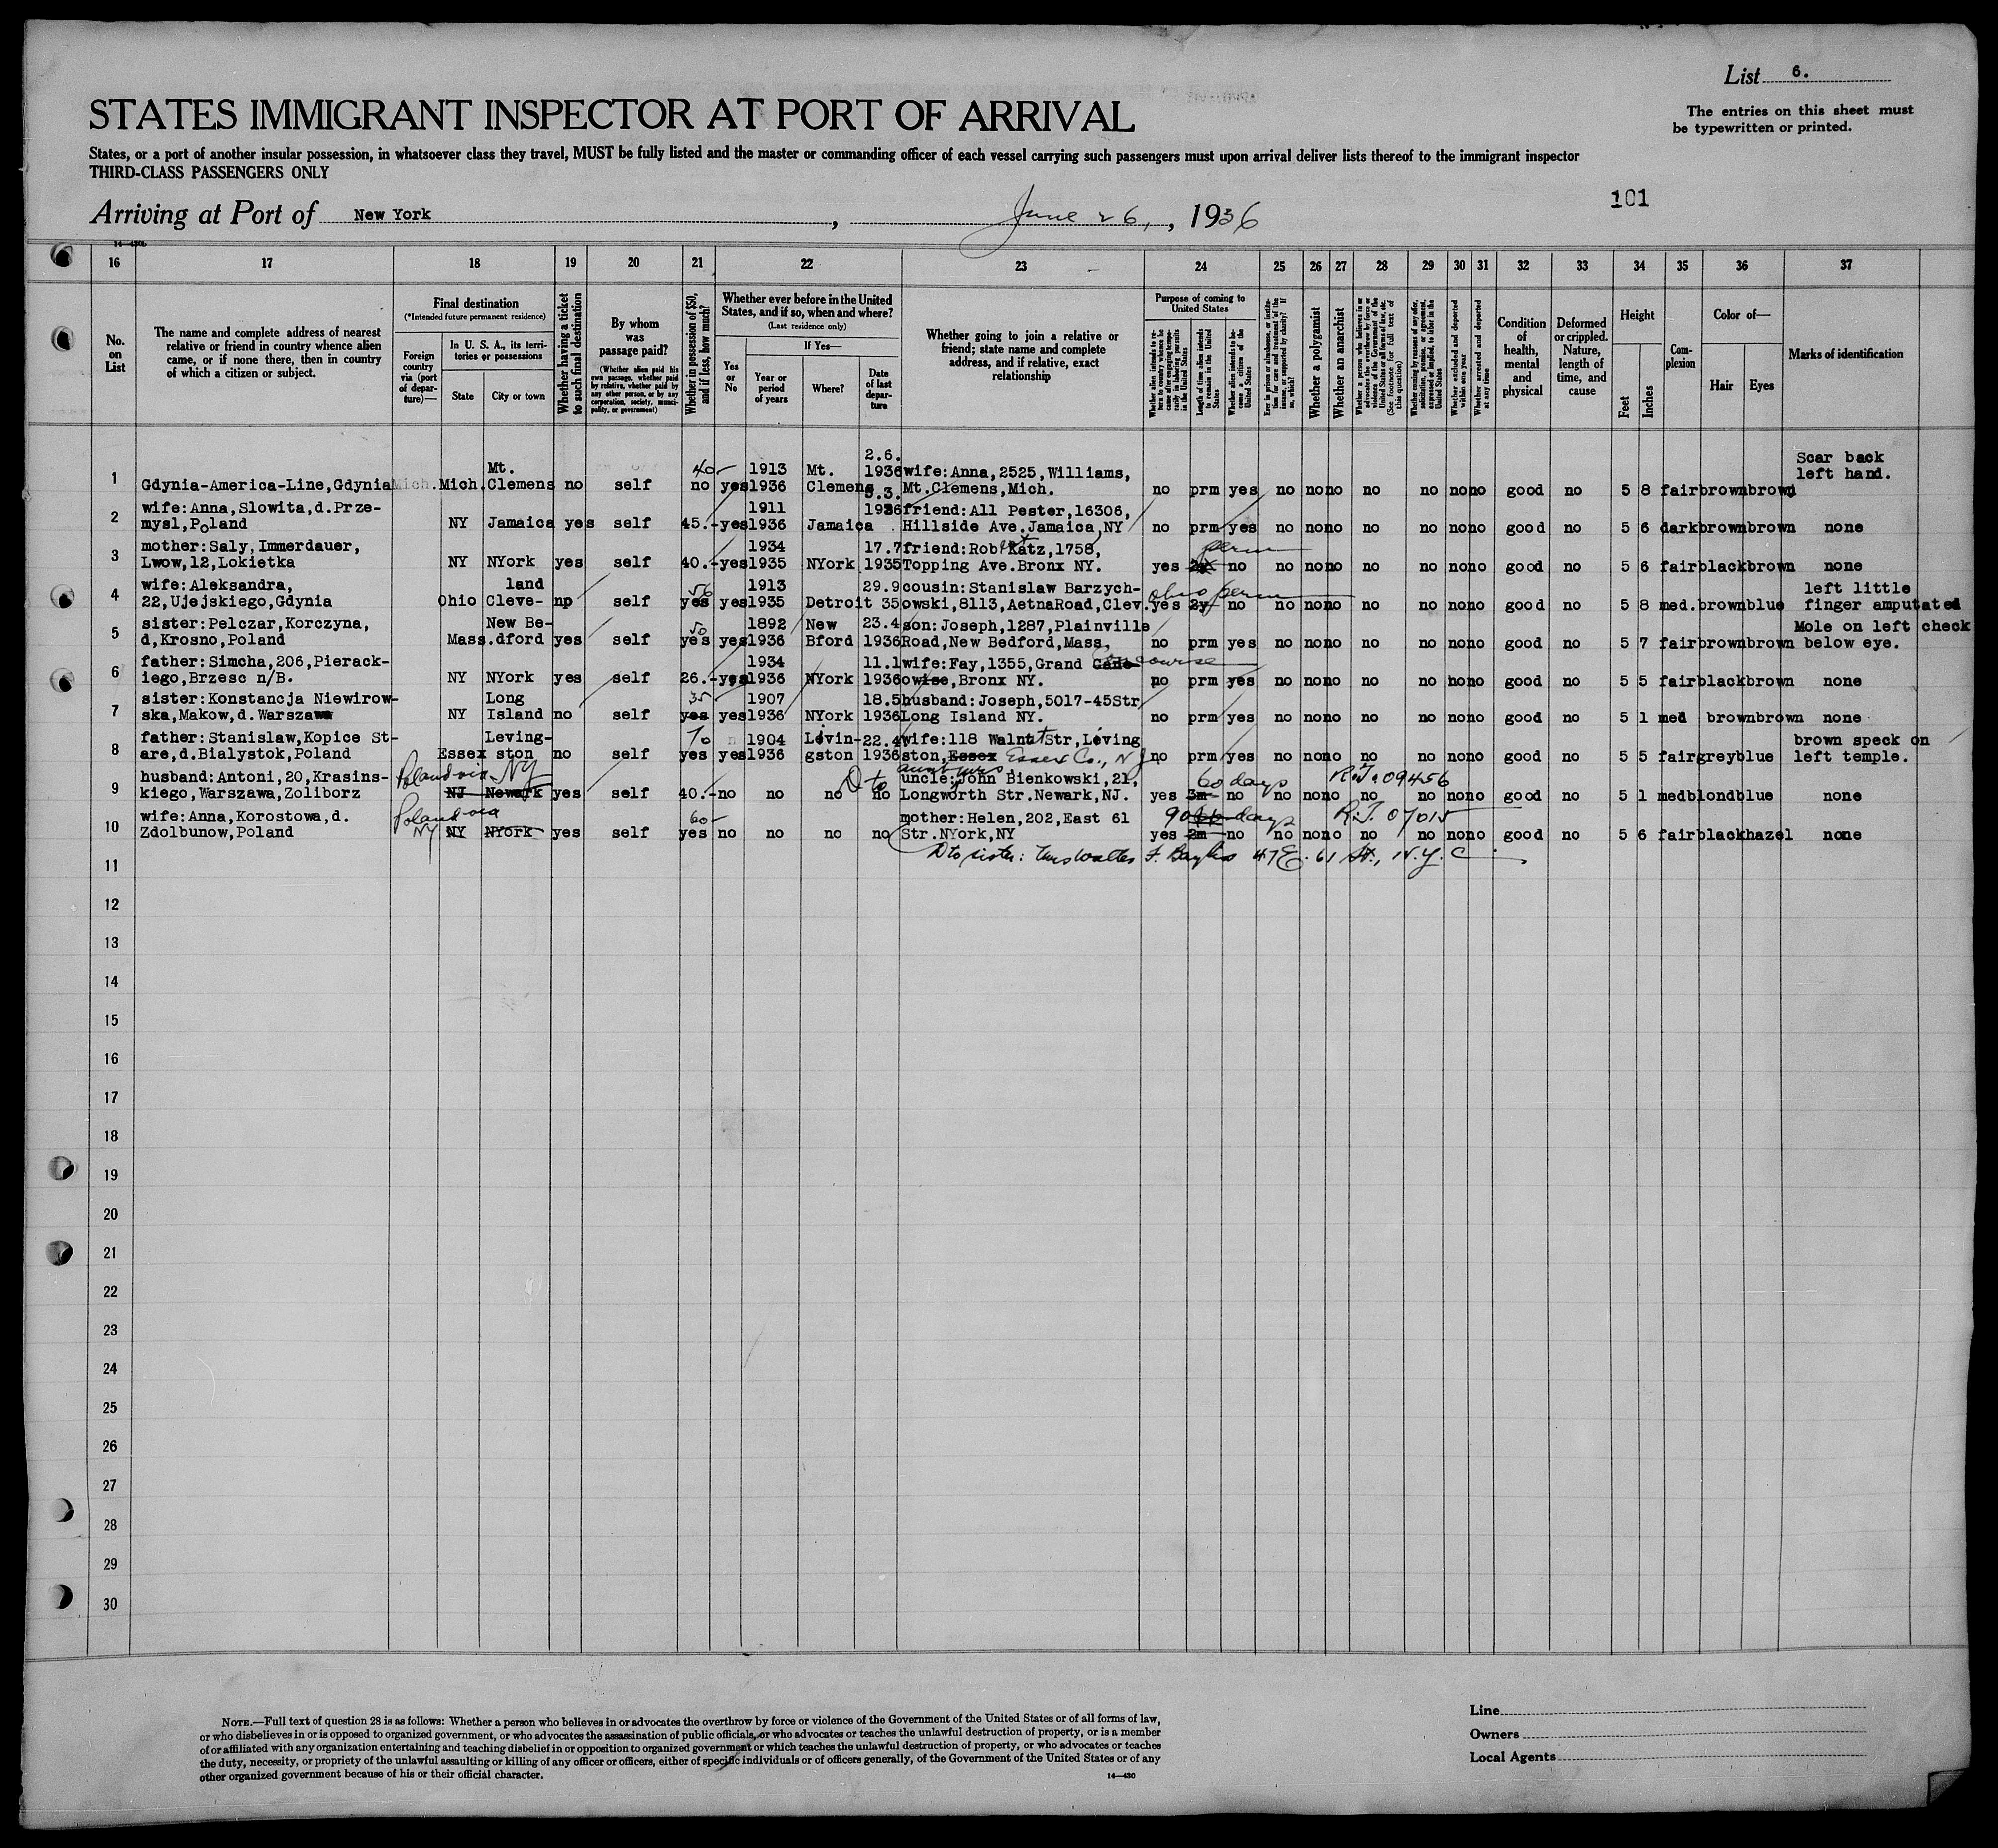 List 6.
The entries on this sheet must
be typewritten or printed.
STATES IMMIGRANT INSPECTOR AT PORT OF ARRIVAL
States, or a port of another insular possession, in whatsoever class they travel, MUST be fully listed and the master or commanding officer of each vessel carrying such passengers must upon arrival deliver lists thereof to the immigrant inspector
THIRD-CLASS PASSENGERS ONLY
101
Arriving at Port of New York, June 26, 1936
14—430b
16 17 18 19 20 21 22 23 24 25 26 27 28 29 30 31 32 33 34 35 36 37
No. on List
The name and complete address of nearest relative or friend in country whence alien came, or if none there, then in country of which a citizen or subject.
Final destination
(*Intended future permanent residence)
Foreign country via (port of departure)—
In U. S. A., its territories or possessions
State
City or town
Whether having a ticket to such final destination
By whom was passage paid?
(Whether alien paid his own passage, whether paid by relative, whether paid by any other person, or by any corporation, society, municipality, or government)
Whether in possession of $50, and if less, how much?
Whether ever before in the United States, and if so, when and where?
(Last residence only)
Yes or No
If Yes—
Year or period of years
Where?
Date of last departure
Whether going to join a relative or friend; state name and complete address, and if relative, exact relationship
Purpose of coming to United States
Length of time alien intends to remain in the United States
Whether alien intends to become a citizen of the United States
Whether a polygamist
Whether an anarchist
Whether excluded and deported within one year
Whether arrested and deported at any time
Condition of health, mental and physical
Deformed or crippled. Nature, length of time, and cause
Height
Feet
Inches
Complexion
Color of—
Hair
Eyes
Marks of identification
1 Gdynia-America-Line,Gdynia Mich. Mich. Mt. Clemens no self 40- no yes 1913 1936 Mt. Clemens 2.6. 1936 wife:Anna,2525,Williams, Mt.Clemens,Mich. no prm yes no no no no no no no good no 5 8 fair brown brown Scar back left hand.
2 wife:Anna,Slowita,d.Prze- mysl,Poland NY Jamaica yes self 45.- yes 1911 1936 Jamaica 3.3. 1936 friend:All Pester,16306, Hillside Ave.Jamaica,NY no prm yes no no no no no no no good no 5 6 dark brown brown none
3 mother:Saly,Immerdauer, Lwow,12,Lokietka NY NYork yes self 40.- yes 1934 1935 NYork 17.7 1935 friend:Rob Katz,1758, Topping Ave.Bronx NY. yes perm no no no no no no no no good no 5 6 fair black brown none
4 wife:Aleksandra, 22,Ujejskiego,Gdynia Ohio land Cleve- np self 56 yes yes 1913 1935 Detroit 29.9 35 cousin:Stanislaw Barzych- owski,8113,AetnaRoad,Clev. ohio perm yes 2y no no no no no no no no good no 5 8 med. brown blue left little finger amputated
5 sister:Pelczar,Korczyna, d,Krosno,Poland Mass. New Be- dford yes self 50 yes yes 1892 1936 New Bford 23.4 1936 son:Joseph,1287,Plainville Road,New Bedford,Mass, no prm yes no no no no no no no good no 5 7 fair brown brown Mole on left check below eye.
6 father:Simcha,206,Pierack- iego,Brzesc n/B. NY NYork yes self 26.- yes 1934 1936 NYork 11.1 1936 wife:Fay,1355,Grand Conc ourse owise,Bronx NY. no prm yes no no no no no no no good no 5 5 fair black brown none
7 sister:Konstancja Niewirow- ska,Makow,d.Warszawa NY Long Island no self 35 yes yes 1907 1936 NYork 18.5 1936 husband:Joseph,5017-45Str, Long Island NY. no prm yes no no no no no no no good no 5 1 med brown brown none
8 father:Stanislaw,Kopice St- are,d.Bialystok,Poland Essex Leving- ston no self 70 yes yes 1904 1936 Livin- gston 22.4 1936 wife:118 Walnut Str,Living ston,Essex Essex Co., NJ no prm yes no no no no no no no good no 5 5 fair grey blue brown speck on left temple.
9 husband:Antoni,20,Krasins- kiego,Warszawa,Zoliborz Poland via NY NJ Newark yes self 40.- no no no no D to aunt Mrs uncle:John Bienkowski,21, Longworth Str.Newark,NJ. yes 3m 60 days no no no no no no no no R.T. 09456 good no 5 1 med blond blue none
10 wife:Anna,Korostowa,d. Zdolbunow,Poland Poland via NY NY NYork yes self 60- yes no no no no mother:Helen,202,East 61 Str.NYork,NY yes 2m 90 days no no no no no no no no R.T. 07015 good no 5 6 fair black hazel none
D to sister: Mrs Walter F. 47 E. 61 St., N.Y.C.
11
12
13
14
15
16
17
18
19
20
21
22
23
24
25
26
27
28
29
30
NOTE.—Full text of question 28 is as follows: Whether a person who believes in or advocates the overthrow by force or violence of the Government of the United States or of all forms of law,
or who disbelieves in or is opposed to organized government, or who advocates the assassination of public officials, or who advocates or teaches the unlawful destruction of property, or is a member
of or affiliated with any organization entertaining and teaching disbelief in or opposition to organized government or which teaches the unlawful destruction of property, or who advocates or teaches
the duty, necessity, or propriety of the unlawful assaulting or killing of any officer or officers, either of specific individuals or of officers generally, of the Government of the United States or of any
other organized government because of his or their official character.
14—430
Line
Owners
Local Agents